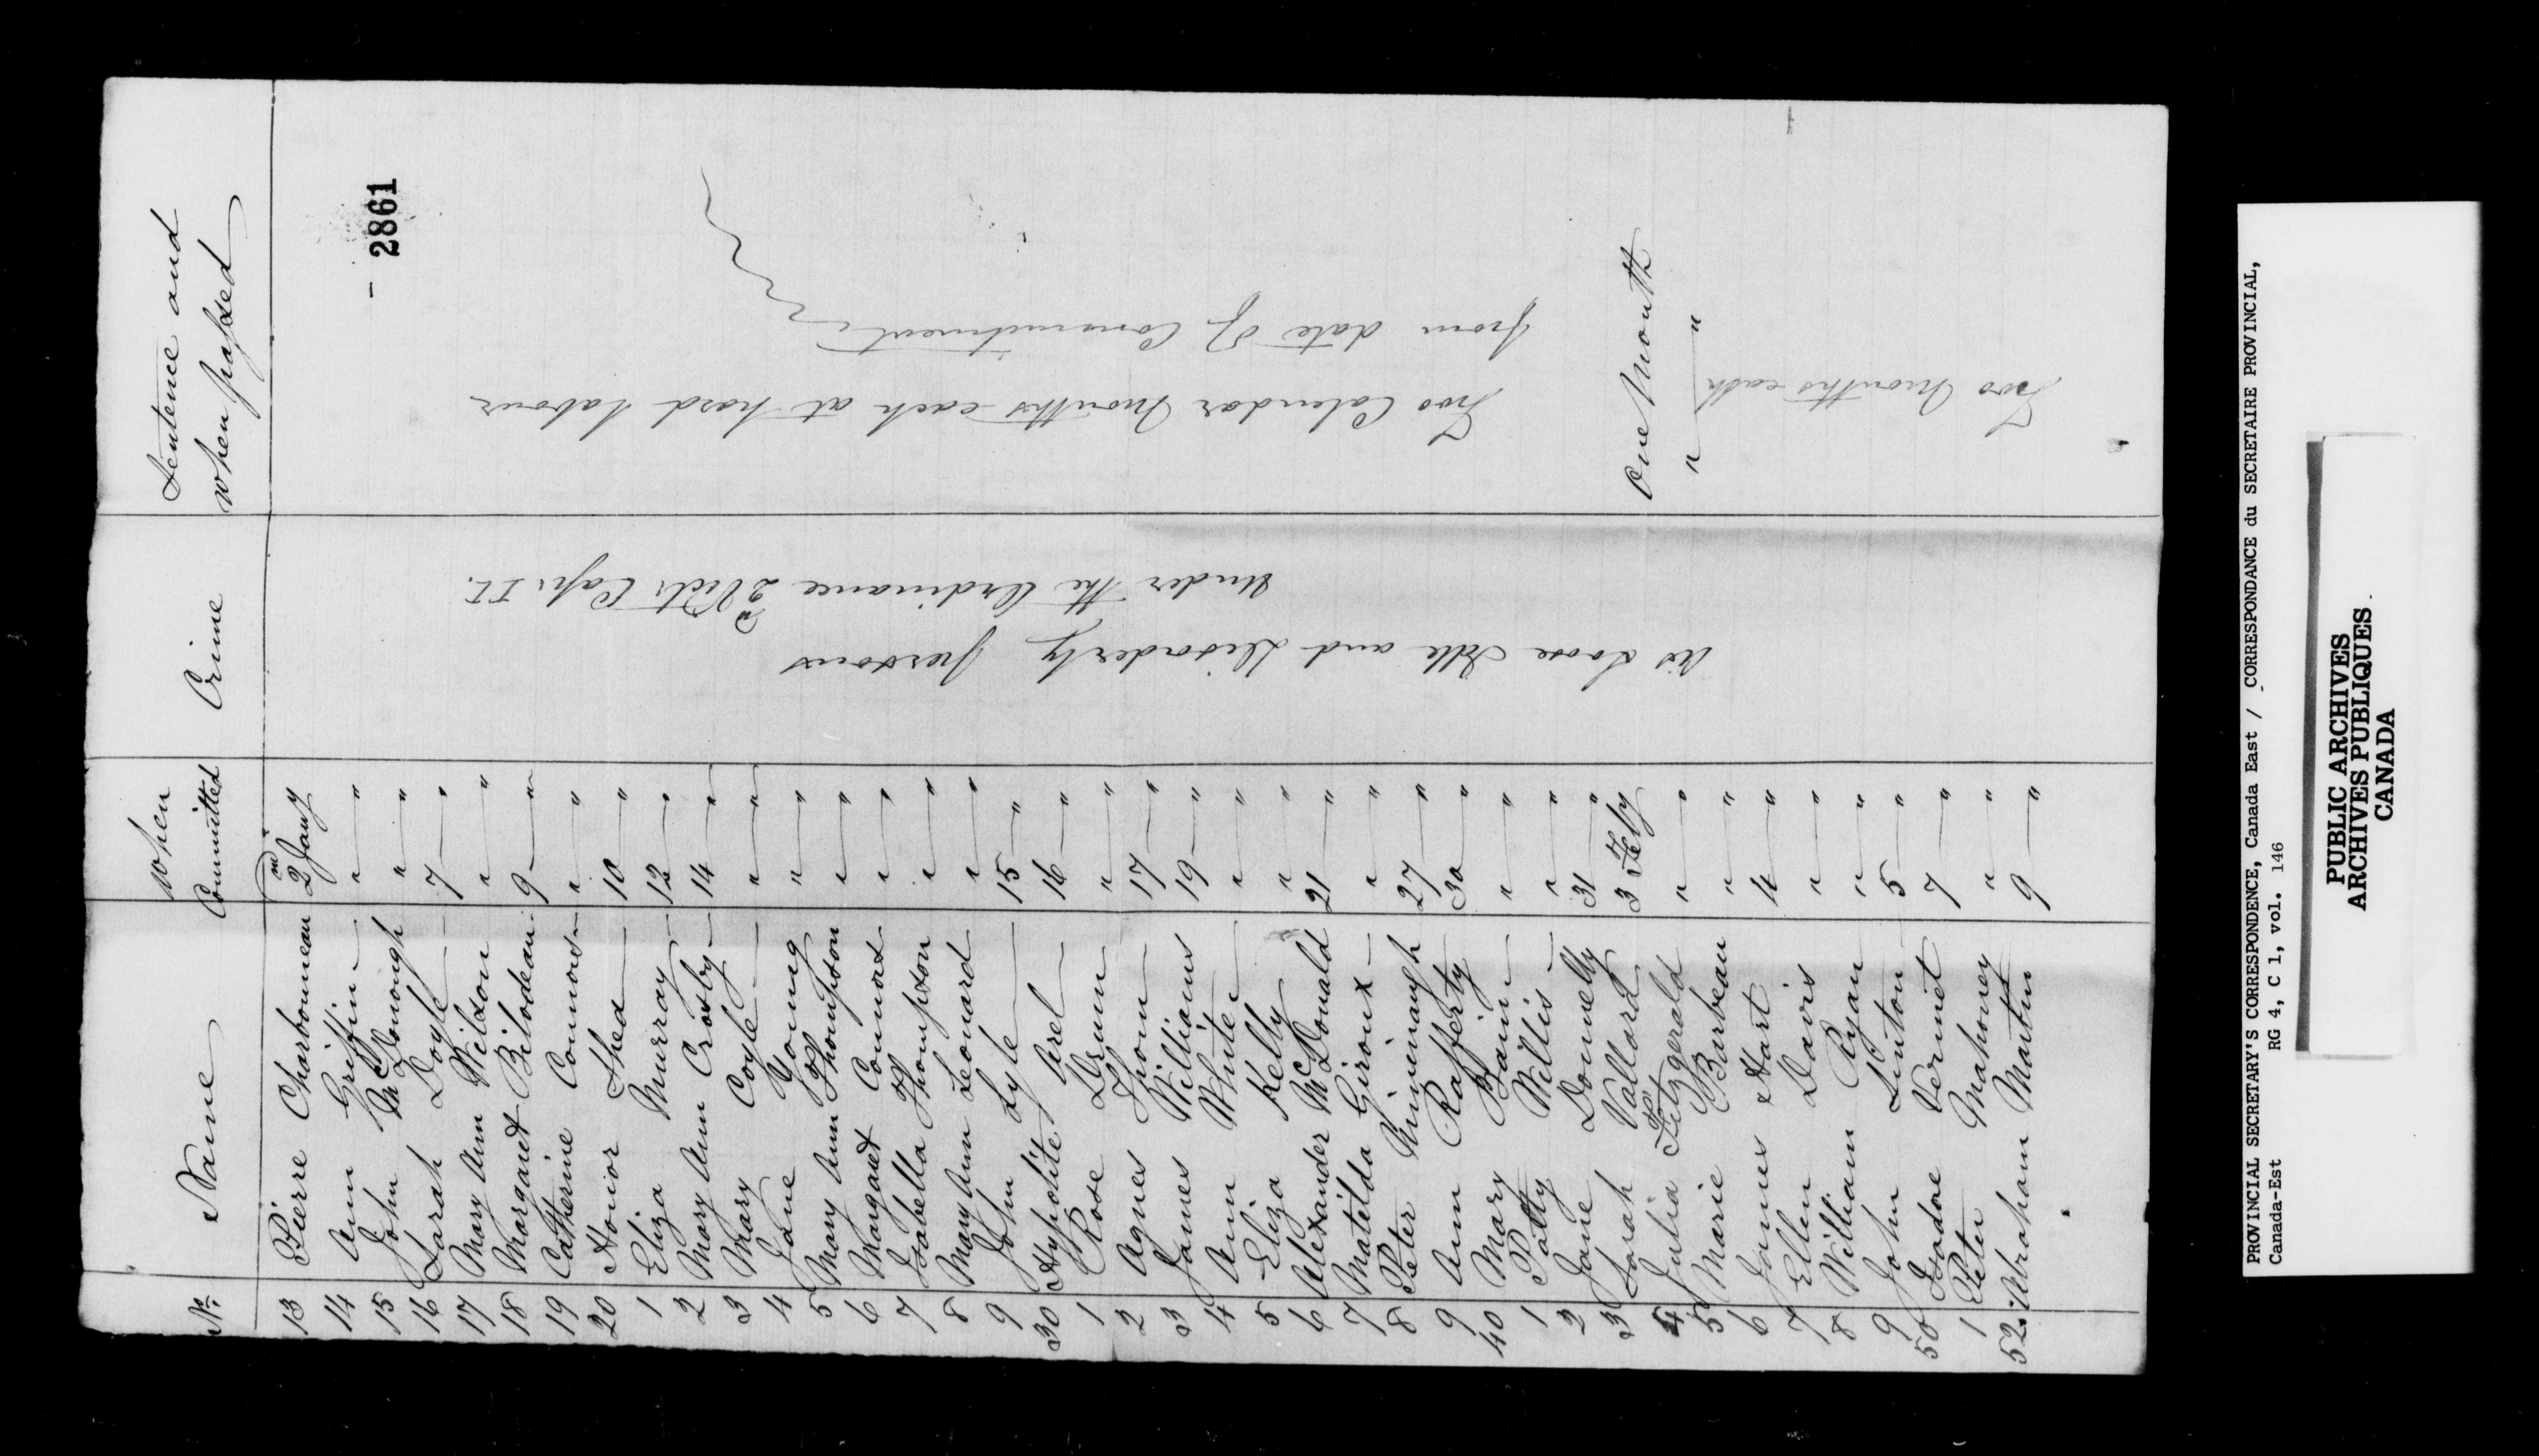 No. Name When Committed Crime Sentence and when passed
- 2861
13 Pierre Charbonneau 2nd Jany
14 Ann Griffin " "
15 John McDonough " "
16 Sarah Doyle 7 "
17 Mary Ann Wilson " "
18 Margaret Bilodeau 9 "
19 Catherine Connors " "
20 Honor Shea 10 "
1 Eliza Murray 12 "
2 Mary Ann Crosby 14 "
3 Mary Coyle " "
4 Jane Young " "
5 Mary Ann Thompson " "
6 Margaret Connors " "
7 Isabella Thompson " "
8 Mary Ann Leonard " "
9 John Lyle 15 "
30 Hypolite Airel 16 "
1 Rose Drum " "
2 Agnes Thom 17 "
3 James Williams 19 "
4 Ann White " "
5 Eliza Kelly " "
6 Alexander McDonald 21 "
7 Matilda Giroux " "
8 Peter 27 "
9 Ann Rafferty 30 "
40 Mary Bain " "
1 Patty Willis " "
2 Jane Donnelly 31 "
3 Sarah Vallard 3 Feby
4 Julia Fitzgerald " "
5 Marie Barbeau " "
6 James Hart 4 "
7 Ellen Davis " "
8 William Ryan " "
9 John Linton 5 "
50 Isodore Vermet 7 "
1 Peter Mahoney " "
52 Abraham Martin 9 "
As Loose Idle and Disorderly persons
under the Ordinance 2d Vict. Cap. II.
Two Calendar Months each at hard labour
from date of Commitment
One Month
" "
Two Months each
PROVINCIAL SECRETARY'S CORRESPONDENCE, Canada East / CORRESPONDANCE du SECRETAIRE PROVINCIAL,
Canada-Est RG 4, C 1, vol. 146
PUBLIC ARCHIVES
ARCHIVES PUBLIQUES
CANADA